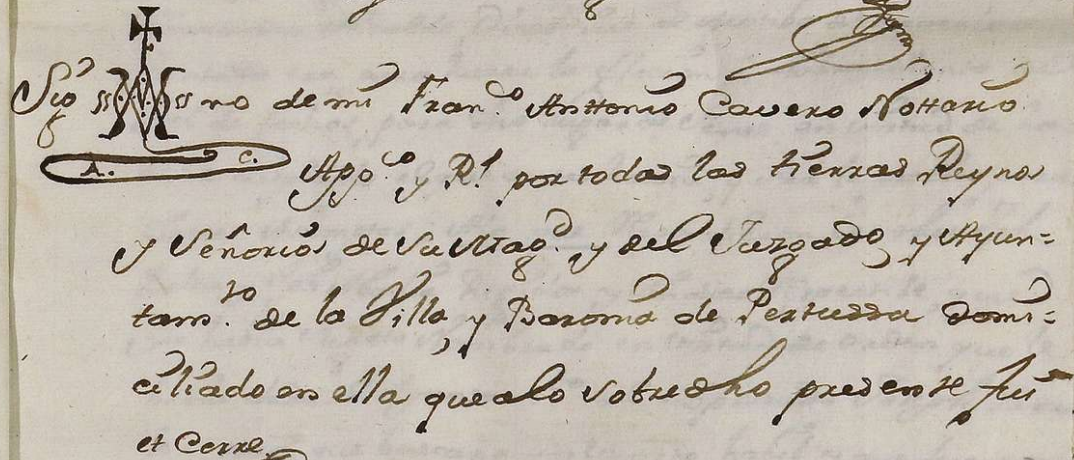 Sig no de mi Fran.co Anttonio Cavero Nottario
A. C.
App.co y R.l por todas las tierras Reynos
y Señorios de su Mag.d y del Juzgado y Ayun=
tam.to de la Villa y Baronia de Pertussa Domi=
ciliado en ella que a lo sobredho presente fui
et Cerre